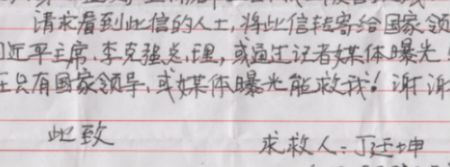 请求看到此信的人士,将此信转寄给国家领
近平主席、李克强总理,或通过记者媒体曝光
只有国家领导,或媒体曝光能救我!谢谢
此致
求救人:丁廷坤